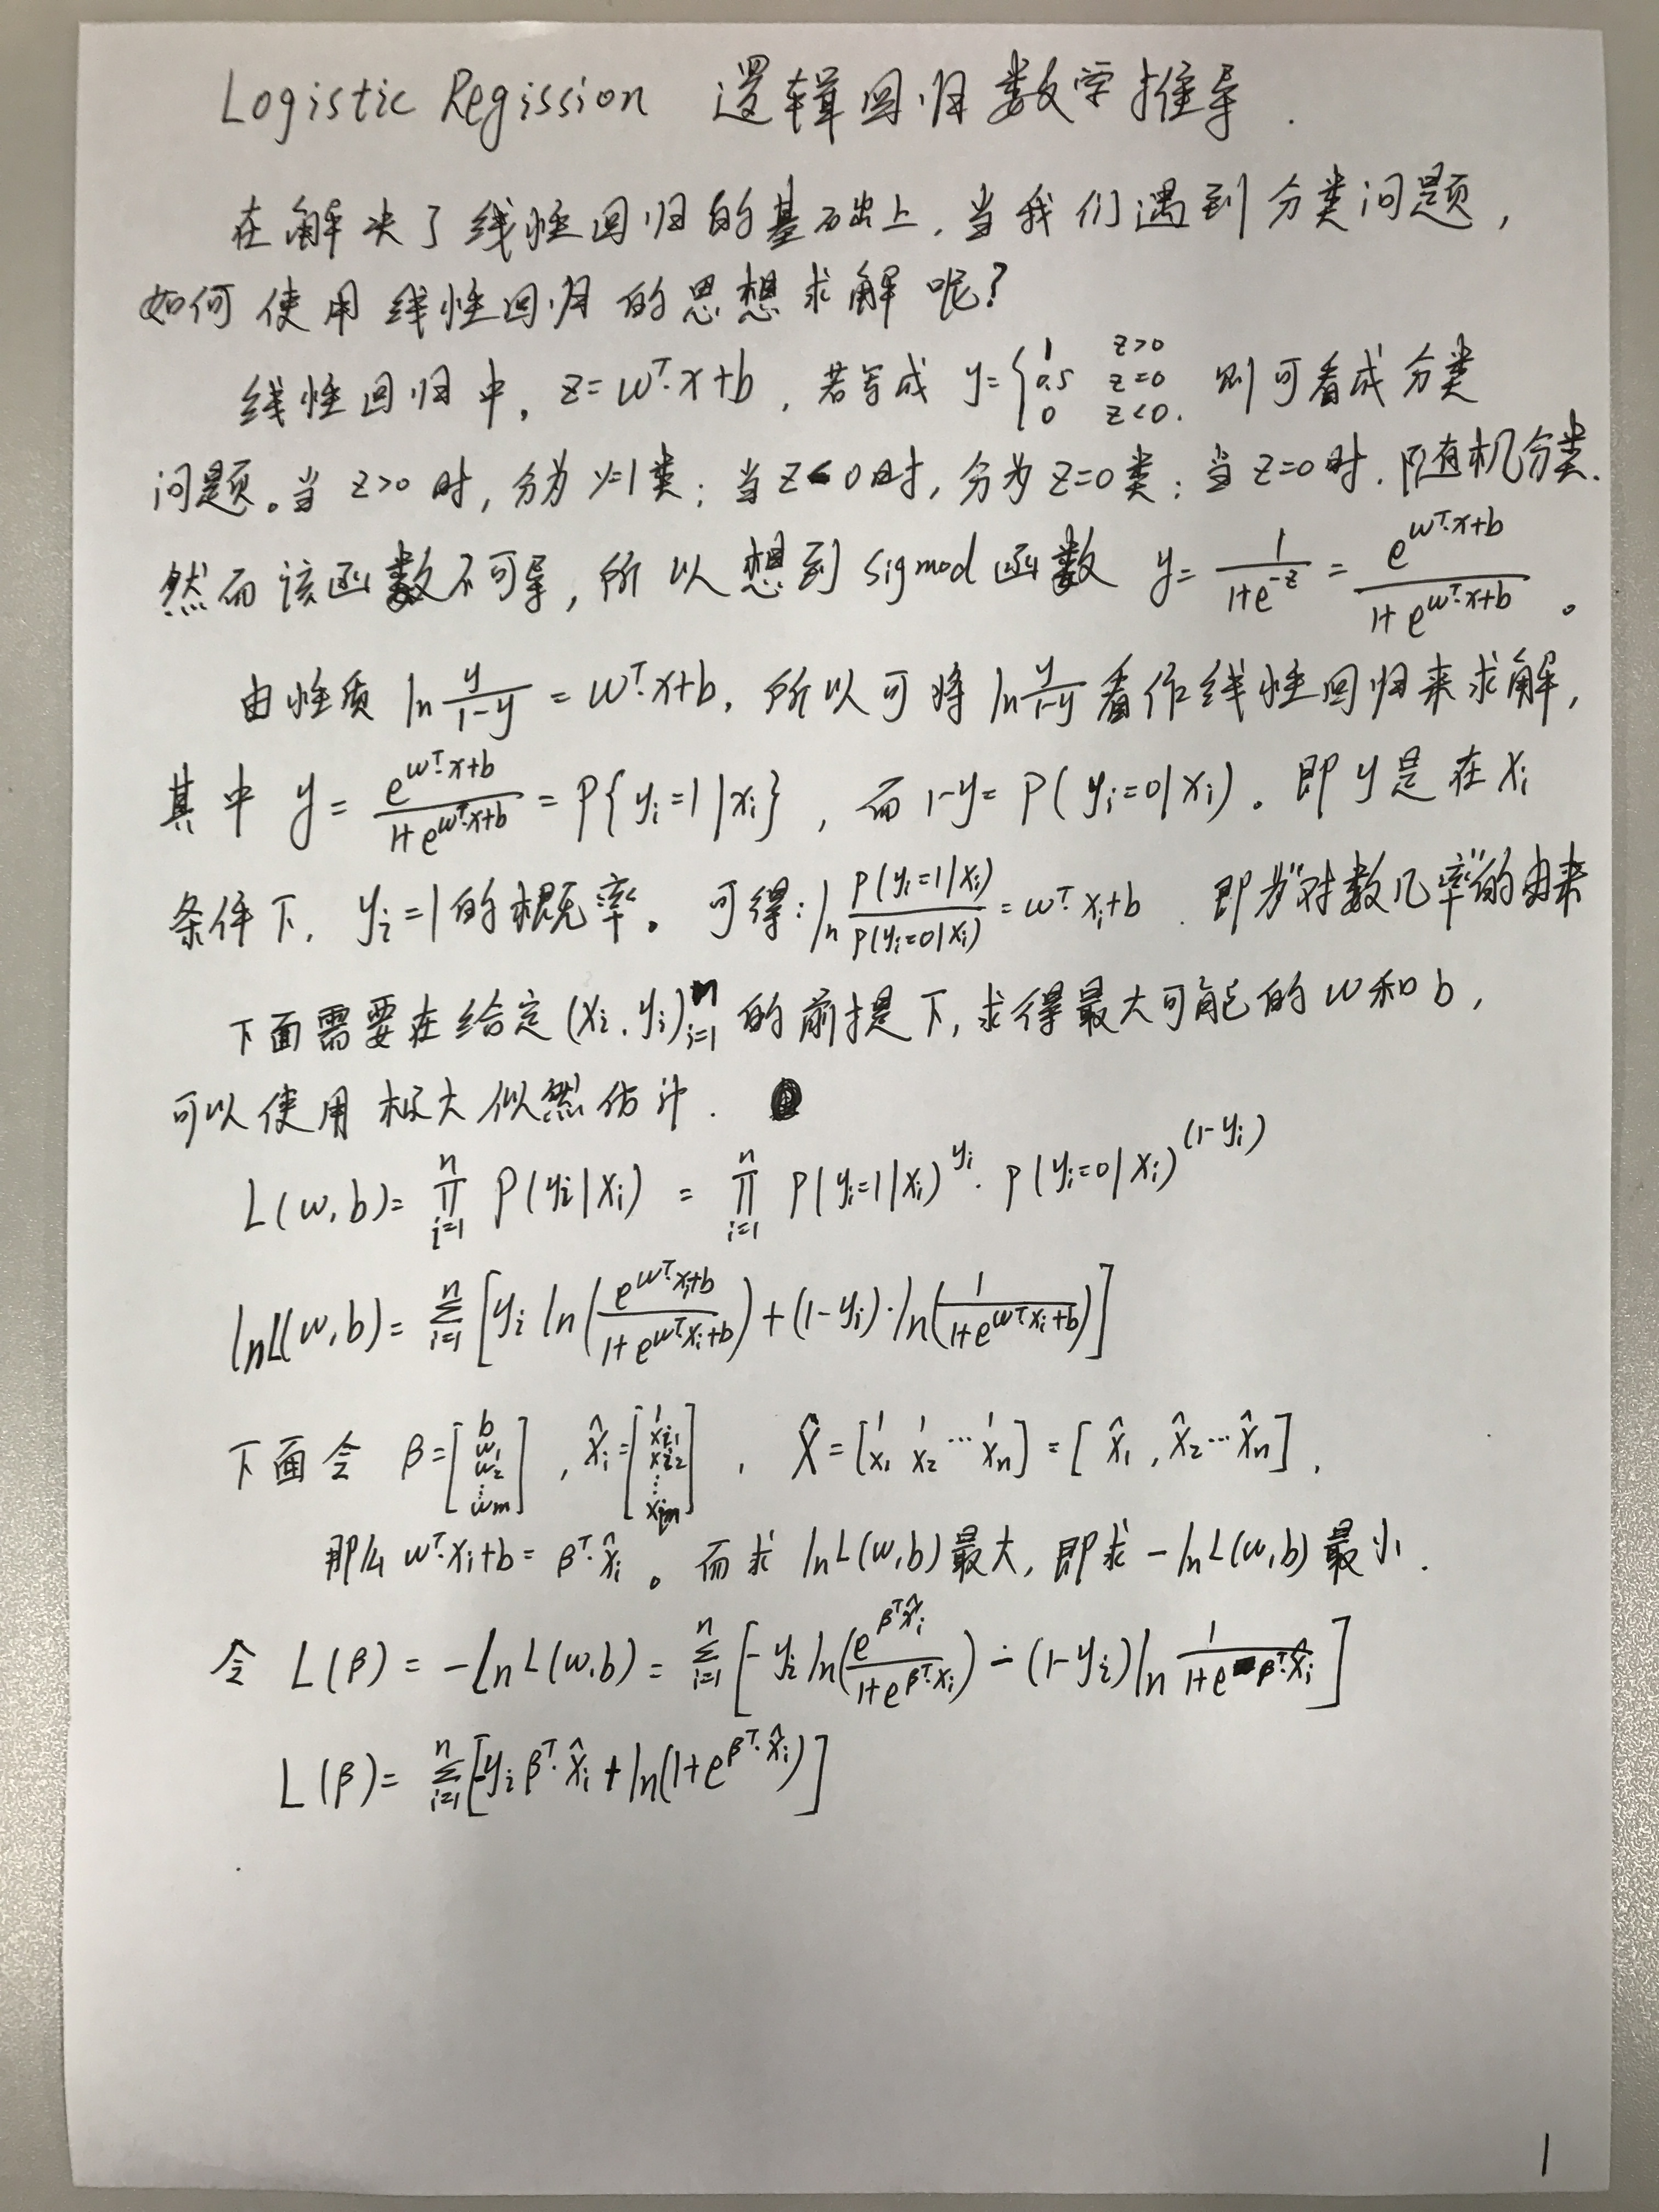 Logistic Regission 逻辑回归数学推导.
在解决了线性回归的基础上,当我们遇到分类问题,
如何使用线性回归的思想求解呢?
线性回归中, z=wᵀ·x+b, 若写成 y={1 z>0 0.5 z=0 0 z<0. 则可看成分类
问题。当 z>0 时, 分为 y=1类; 当z<0时, 分为 z=0类; 当 z=0时, 随机分类.
然而该函数不可导, 所以想到 sigmod 函数 y= 1/(1+e^(-z)) = e^(wᵀ·x+b)/(1+e^(wᵀ·x+b)) 。
由性质 ln y/(1-y) = wᵀ·x+b, 所以可将 ln y/(1-y) 看作线性回归来求解,
其中 y = e^(wᵀ·x+b)/(1+e^(wᵀ·x+b)) = P{yᵢ=1|xᵢ}, 而 1-y= P(yᵢ=0|xᵢ)。即 y 是在 xᵢ
条件下, yᵢ=1的概率。可得: ln P(yᵢ=1|xᵢ)/P(yᵢ=0|xᵢ) = wᵀ·xᵢ+b. 即为"对数几率"的由来
下面需要在给定 (xᵢ, yᵢ)ⁿᵢ₌₁ 的前提下, 求得最大可能的 w和 b,
可以使用极大似然估计.
L(w,b)= ∏ⁿᵢ₌₁ P(yᵢ|xᵢ) = ∏ⁿᵢ₌₁ P(yᵢ=1|xᵢ)^(yᵢ) · P(yᵢ=0|xᵢ)^((1-yᵢ))
lnL(w,b)= Σⁿᵢ₌₁ [yᵢ ln(e^(wᵀ·xᵢ+b)/(1+e^(wᵀxᵢ+b)))+(1-yᵢ)·ln(1/(1+e^(wᵀxᵢ+b)))]
下面令 β=[b w₁ w₂ ⋮ wm], x̂ᵢ=[1 xᵢ₁ xᵢ₂ ⋮ xᵢm], X̂=[1 1 ⋯ 1 x₁ x₂ xn] = [x̂₁, x̂₂⋯x̂n],
那么 wᵀ·xᵢ+b= βᵀ·x̂ᵢ。而求 lnL(w,b)最大, 即求 -lnL(w,b)最小.
令 L(β) = -lnL(w,b) = Σⁿᵢ₌₁ [-yᵢ ln(e^(βᵀx̂ᵢ)/(1+e^(βᵀ·xᵢ))) - (1-yᵢ)ln 1/(1+e^(βᵀ·x̂ᵢ))]
L(β)= Σⁿᵢ₌₁[-yᵢ βᵀ·x̂ᵢ + ln(1+e^(βᵀ·x̂ᵢ))]
1